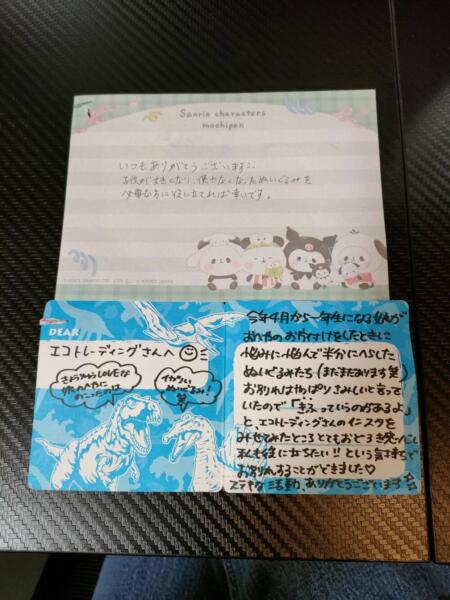 Sanrio characters
mochipan
いつもありがとうございます
子供が大きくなり、使わなくなったぬいぐるみを
必要な方に役に立てれば幸いです。
DEAR
エコトレーディングさんへ
きょうりゅうLOVEな
のこったのは
イカツい
ぬいぐるみ!
笑
今年4月から一年生になる娘が
おへやのお片付けをしたときに
悩みに悩んで半分にへらした
ぬいぐるみたち(まだまだあります笑)
お別れはやっぱりさみしいと言って
いたので「きふっていうのがあるよ」
と、エコトレーディングさんのインスタを
みせてみたところとても
私も役に立ちたい!!という気持ちで
お別れすることができました♡
ステキな活動、ありがとうございます